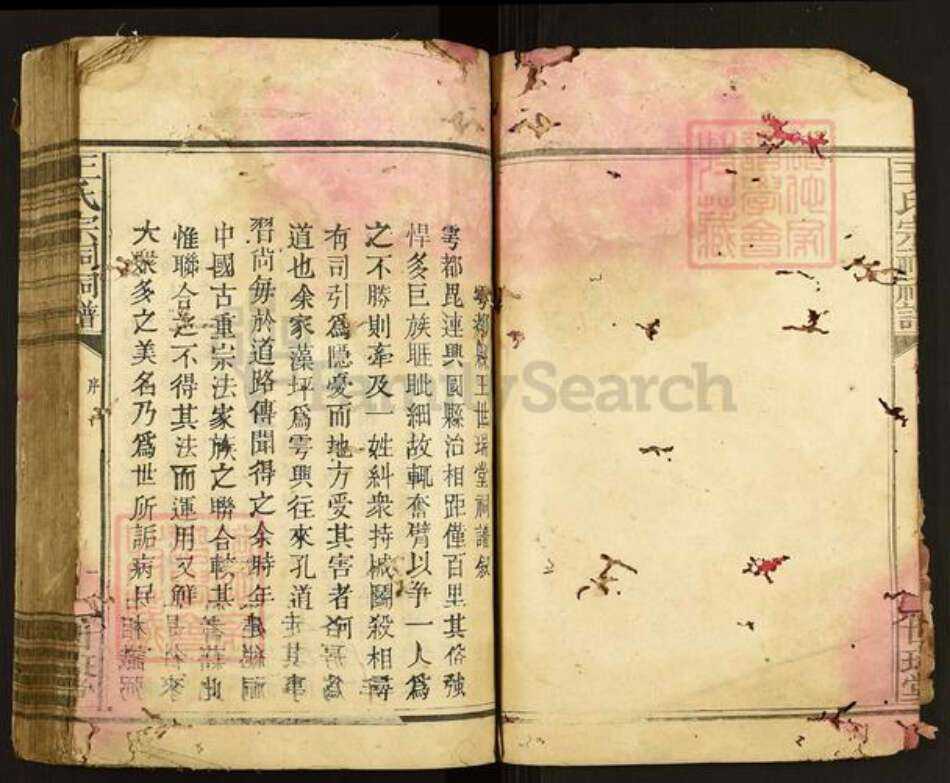 雩都縣王世瑞堂祠譜敘
雩都毘連興國縣治相距僅百里其俗強
悍多巨族睚眦細故輒奮臂以爭一人為
之不勝則牽及一姓糾衆持械鬭殺相尋
有司引為隱憂而地方受其害者
道也余家藻坪為雩興往來孔道其事
習尚每於道路傳聞得之余時年
中國古重宗法家族之聯合
惟聯合之不得其法而運用又
大衆多之美名乃為世所詬病
王氏宗祠祠譜
序
王氏宗祠祠譜
世瑞堂
FamilySearch